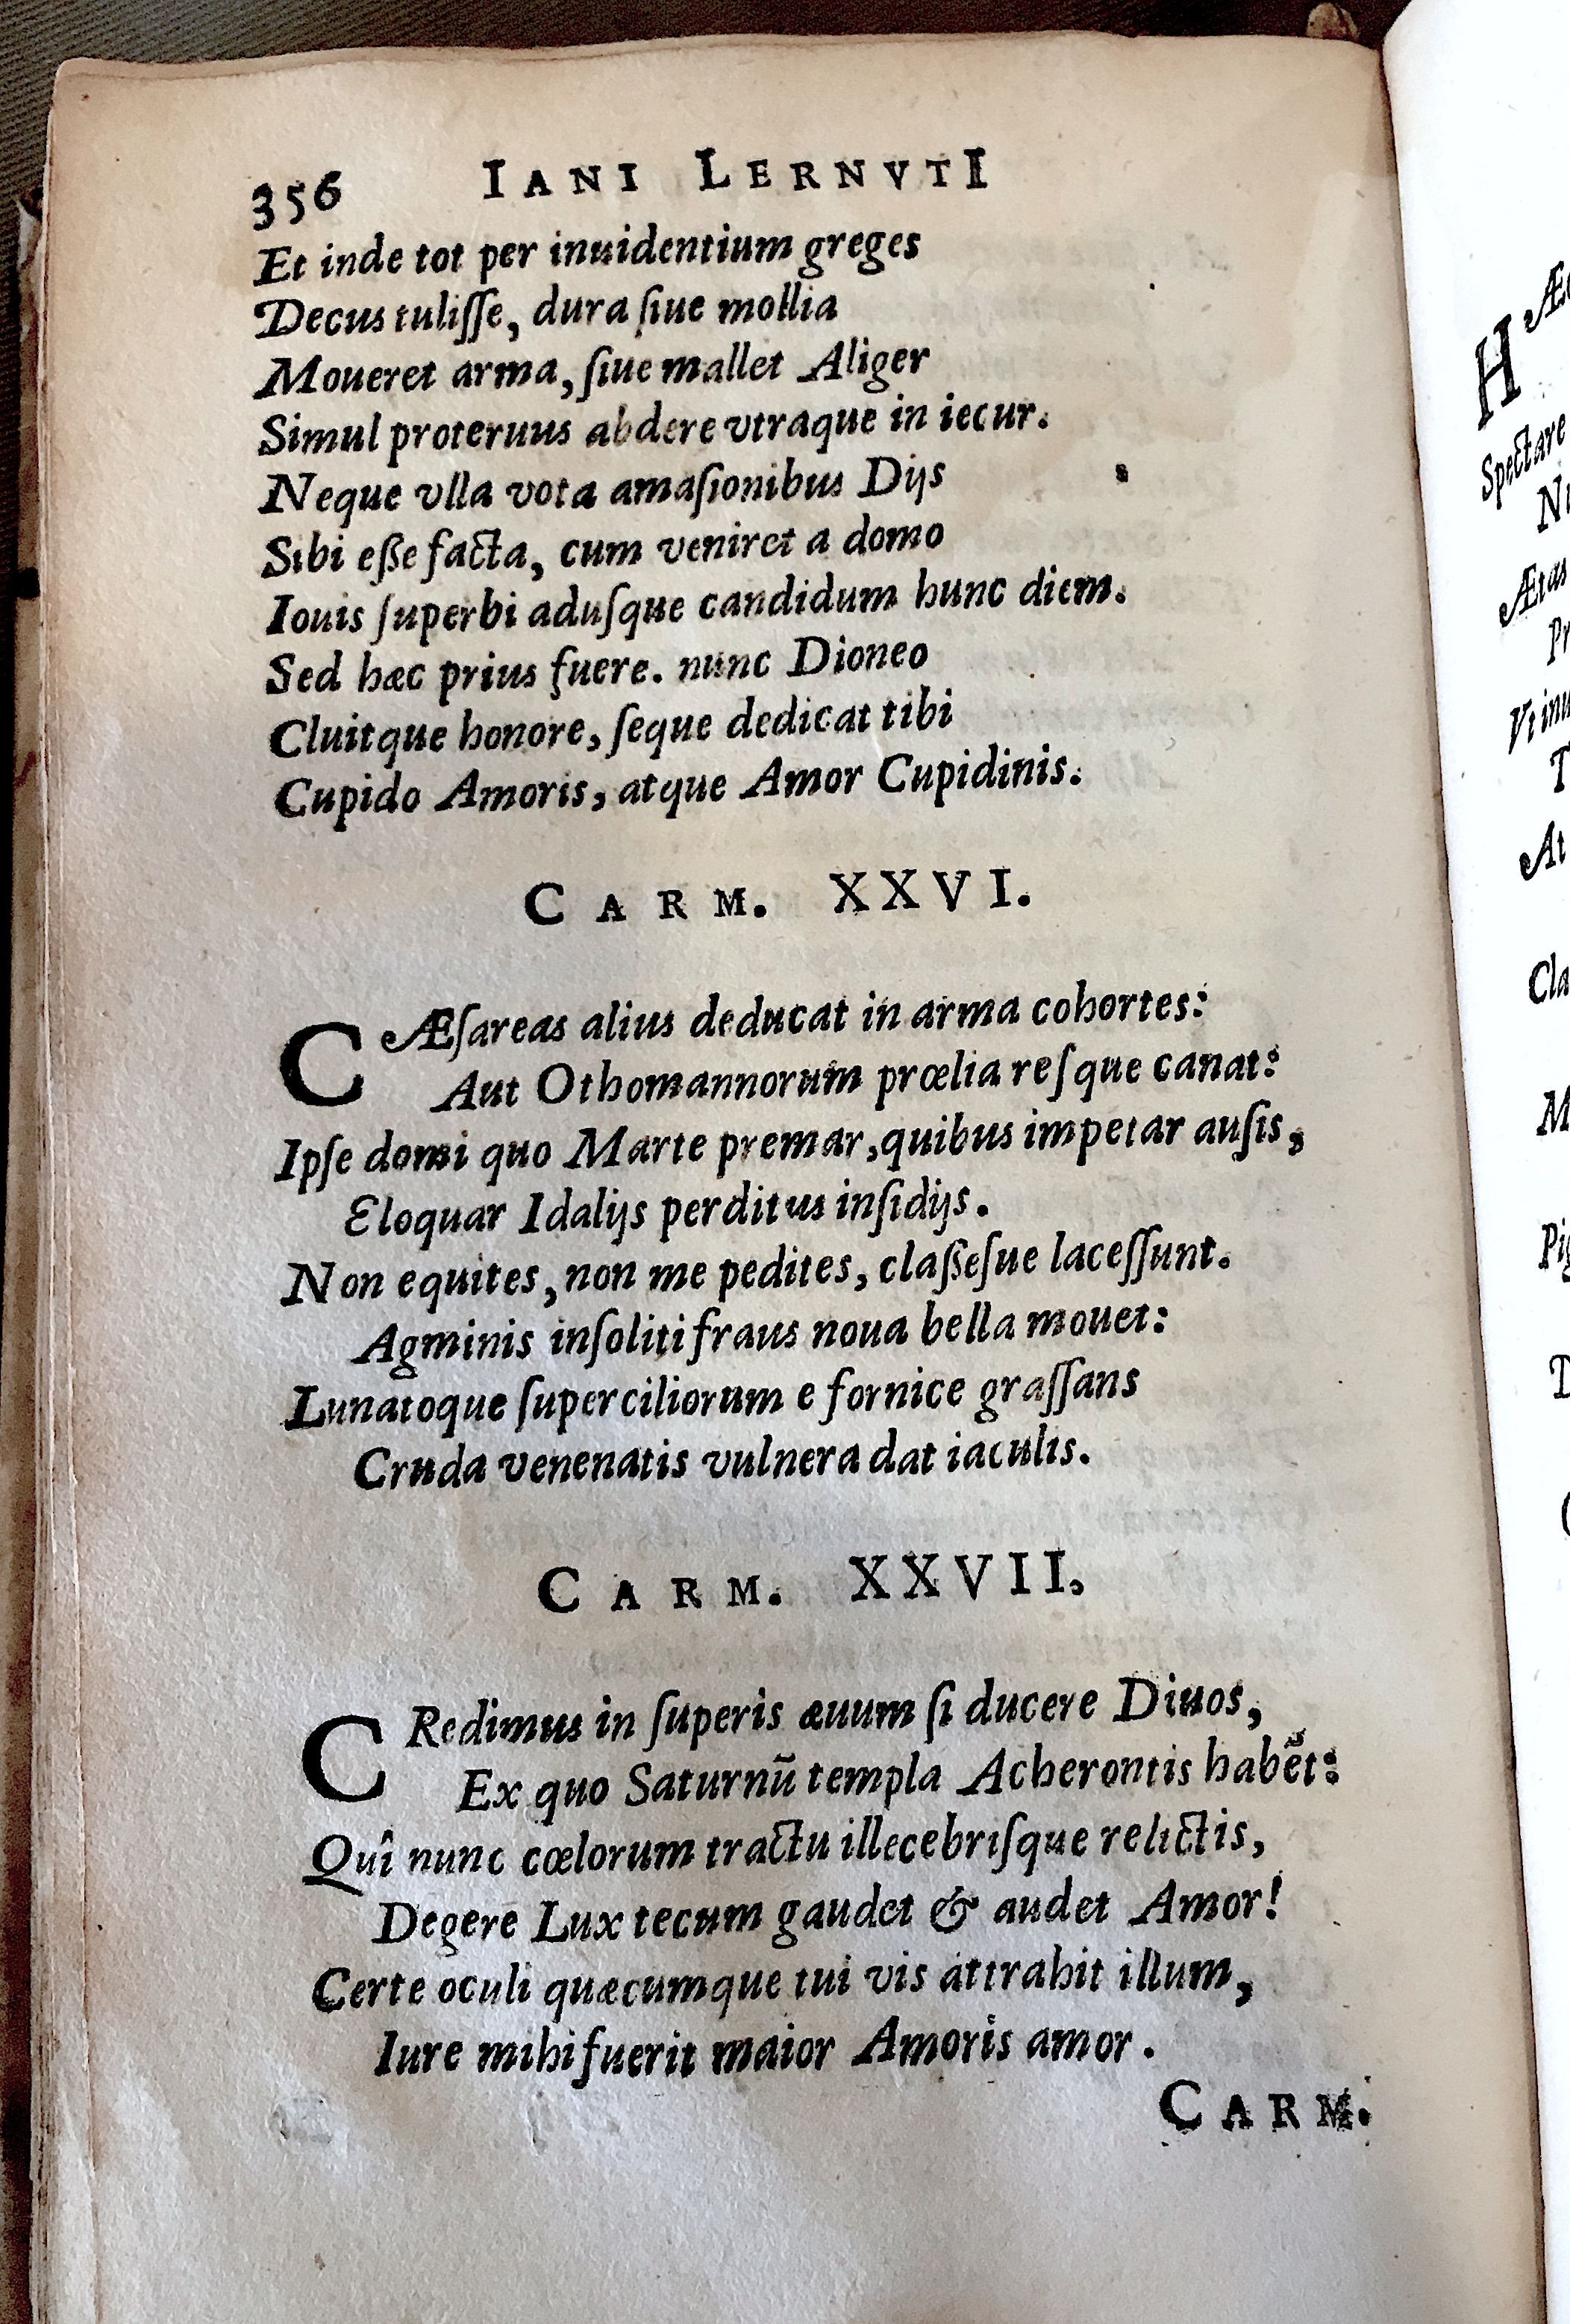 356 IANI LERNVTI
Et inde tot per inuidentium greges
Decus tuliſſe, dura ſiue mollia
Moueret arma, ſiue mallet Aliger
Simul proteruus abdere vtraque in iecur.
Neque vlla vota amaſionibus Dijs
Sibi eße facta, cum veniret a domo
Iouis ſuperbi aduſque candidum hunc diem.
Sed hæc prius fuere. nunc Dioneo
Cluitque honore, ſeque dedicat tibi
Cupido Amoris, atque Amor Cupidinis.
CARM. XXVI.
CÆſareas alius deducat in arma cohortes:
Aut Othomannorum prœlia reſque canat:
Ipſe domi quo Marte premar, quibus impetar auſis,
Eloquar Idalijs perditus inſidijs.
Non equites, non me pedites, claßeſue laceſſunt.
Agminis inſoliti fraus noua bella mouet:
Lunatoque ſuperciliorum e fornice graſſans
Cruda venenatis vulnera dat iaculis.
CARM. XXVII.
CRedimus in ſuperis æuum ſi ducere Diuos,
Ex quo Saturnū templa Acherontis habēt:
Quî nunc cœlorum tractu illecebriſque relictis,
Degere Lux tecum gaudet & audet Amor!
Certe oculi quæcumque tui vis attrahit illum,
Iure mihi fuerit maior Amoris amor.
CARM.
Æ
H
Spectare
Ætas
Pr
Vt inu
T
At
Cla
M